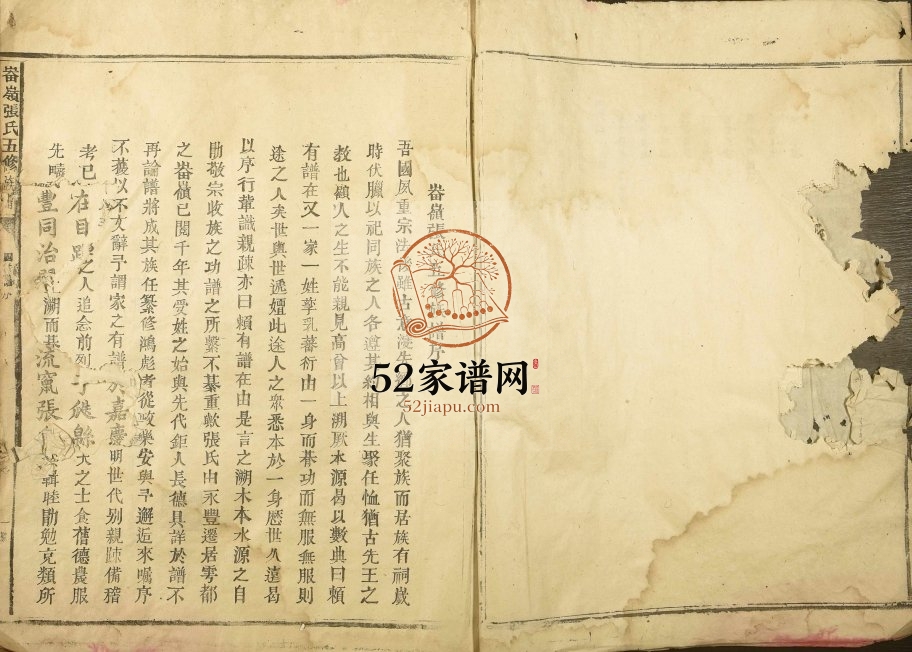 畨嶺張氏五修
畨嶺張
吾國夙重宗法
雖古
之人猶聚族而居族有祠歲
時伏臘以祀同族之人各遵其
相與生聚任恤猶古先王之
教也顧人之生不能親見高曾以上溯厥本源曷以數典曰賴
有譜在又一家一姓孳乳蕃衍由一身而朞功而無服無服則
途之人矣世與世遞嬗此途人之眾悉本於一身歷世久遠曷
以序行輩識親疎亦曰賴有譜在由是言之溯木本水源之自
勖敬宗收族之功譜之所繫不綦重歟張氏由永豐遷居雩都
之畨嶺已閱千年其受姓之始與先代鉅人長德具詳於譜不
再論譜將成其族任纂修鴻彪者從政樂安與予邂逅來囑序
不獲以不文辭予謂家之有譜
嘉慶
明世代別親疎備稽
考已
在目
之人追念前列
大之士食舊德農服
先疇
豐同治
上溯而
流寓張
輯睦勖勉克類所
52家谱网
52jiapu.com